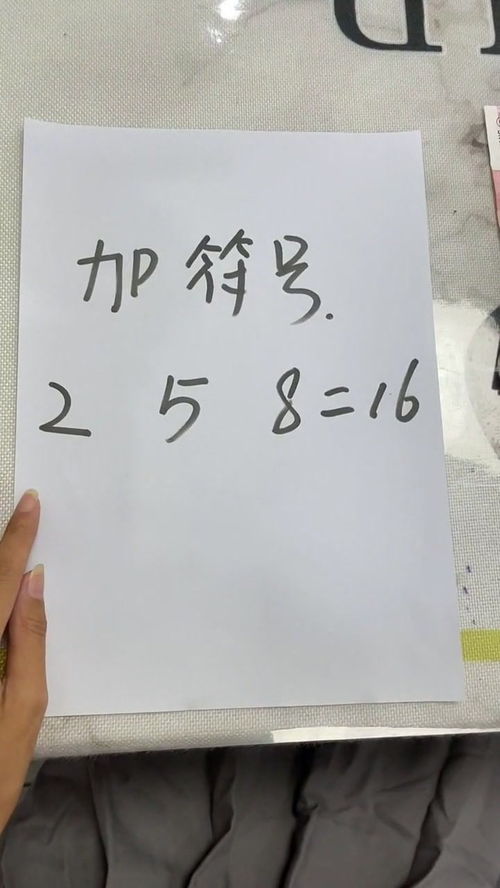 加符号.
2 5 8=16